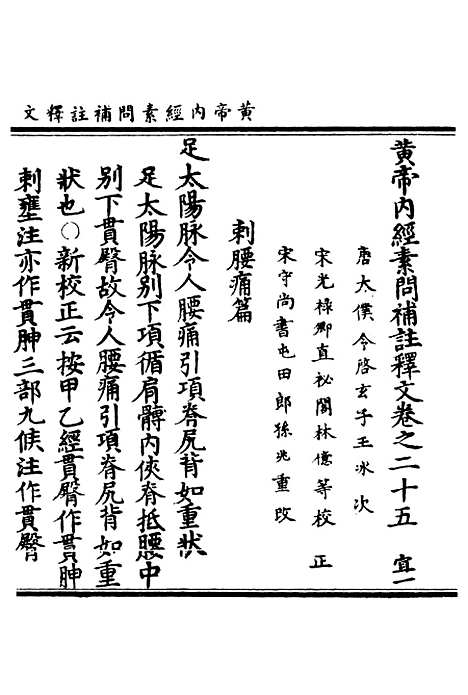 黄帝内經素問補註釋文
黄帝内經素問補註釋文卷之二十五 宜一
唐太僕令啓玄子王冰次
宋光禄卿直祕閣林億等校正
宋守尚書屯田郎孫兆重改
刺腰痛篇
足太陽脉令人腰痛引項脊尻背如重狀
足太陽脉别下項循肩髆内俠脊抵腰中
别下貫臀故令人腰痛引項脊尻背如重
狀也○新校正云按甲乙經貫臀作貫胂
刺瘧注亦作貫胂三部九候注作貫臀